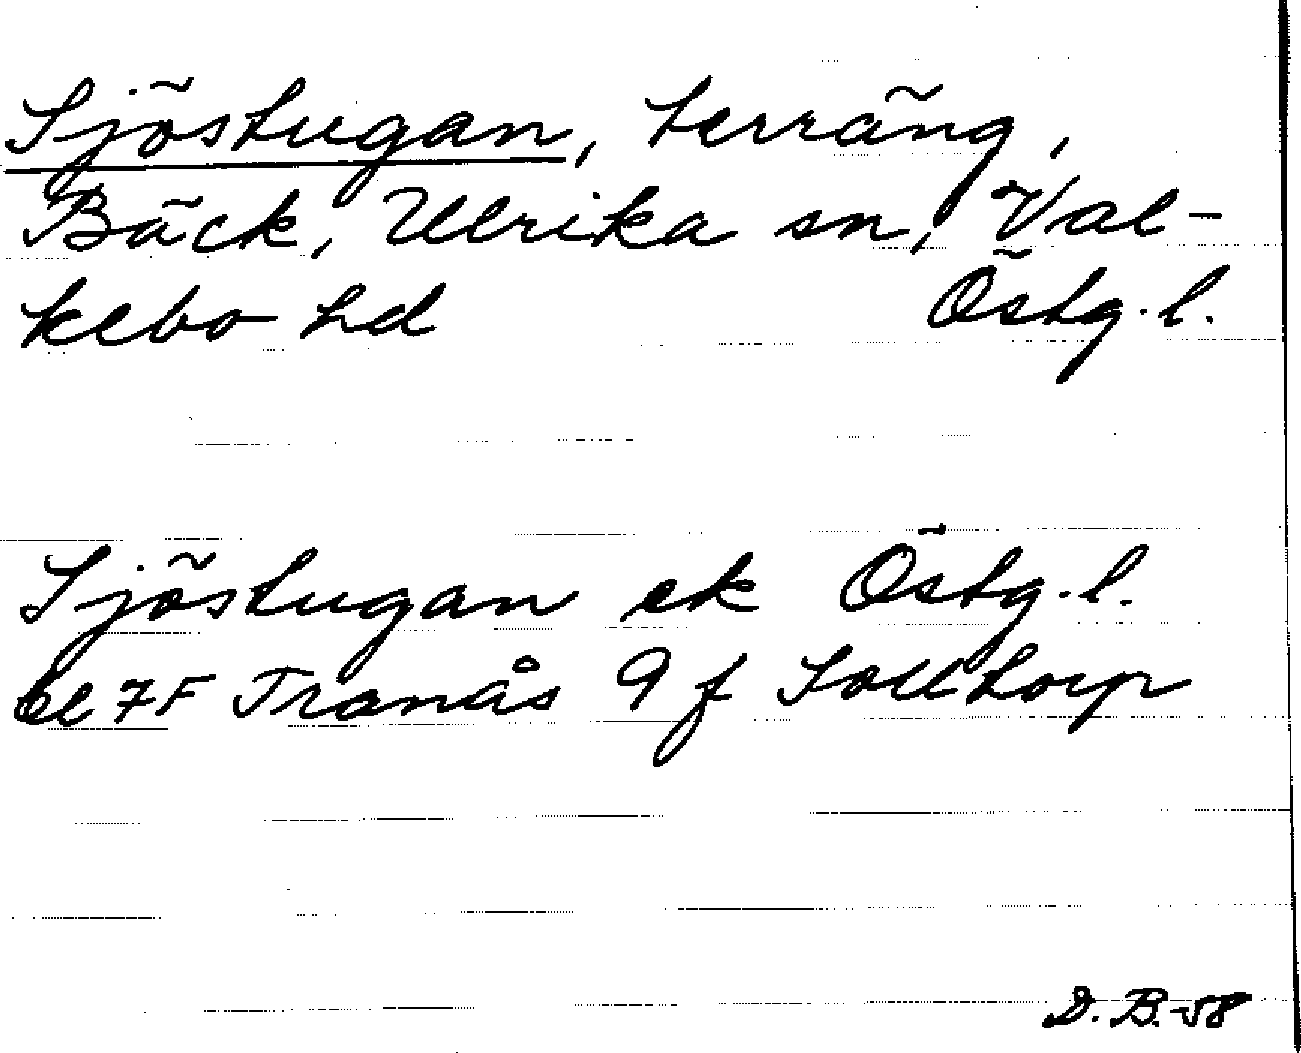 Sjöstugan, terräng,
Bäck, Ulrika sn, Val-
kebo hd Östg. l.
Sjöstugan ek Östg. l.
bl 7F Tranås 9 f Solltorp
D. B. -58